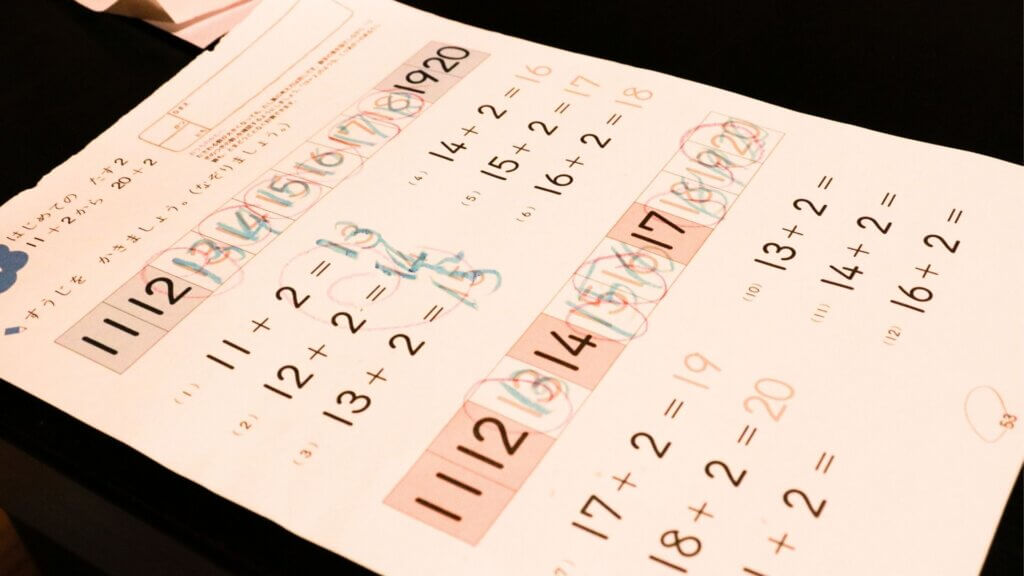 はじめての たす2
11+2から 20+2
すうじを かきましょう。(なぞりましょう。)
11 12 13 14 15 16 17 18 19 20
(1) 11 + 2 = 13
(2) 12 + 2 = 14
(3) 13 + 2 = 15
(4) 14 + 2 = 16
(5) 15 + 2 = 17
(6) 16 + 2 = 18
11 12 13 14 15 16 17 18 19 20
(7) 17 + 2 = 19
18 + 2 = 20
1 + 2 =
(10) 13 + 2 =
(11) 14 + 2 =
(12) 16 + 2 =
53